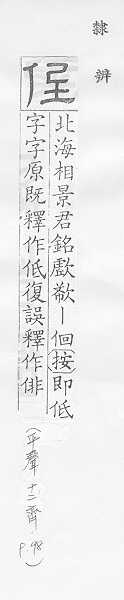 隸辨
北海相景君銘歔欷丨佪按即低
字字原既釋作低復誤釋作俳
(平聲十二齊 P.48)